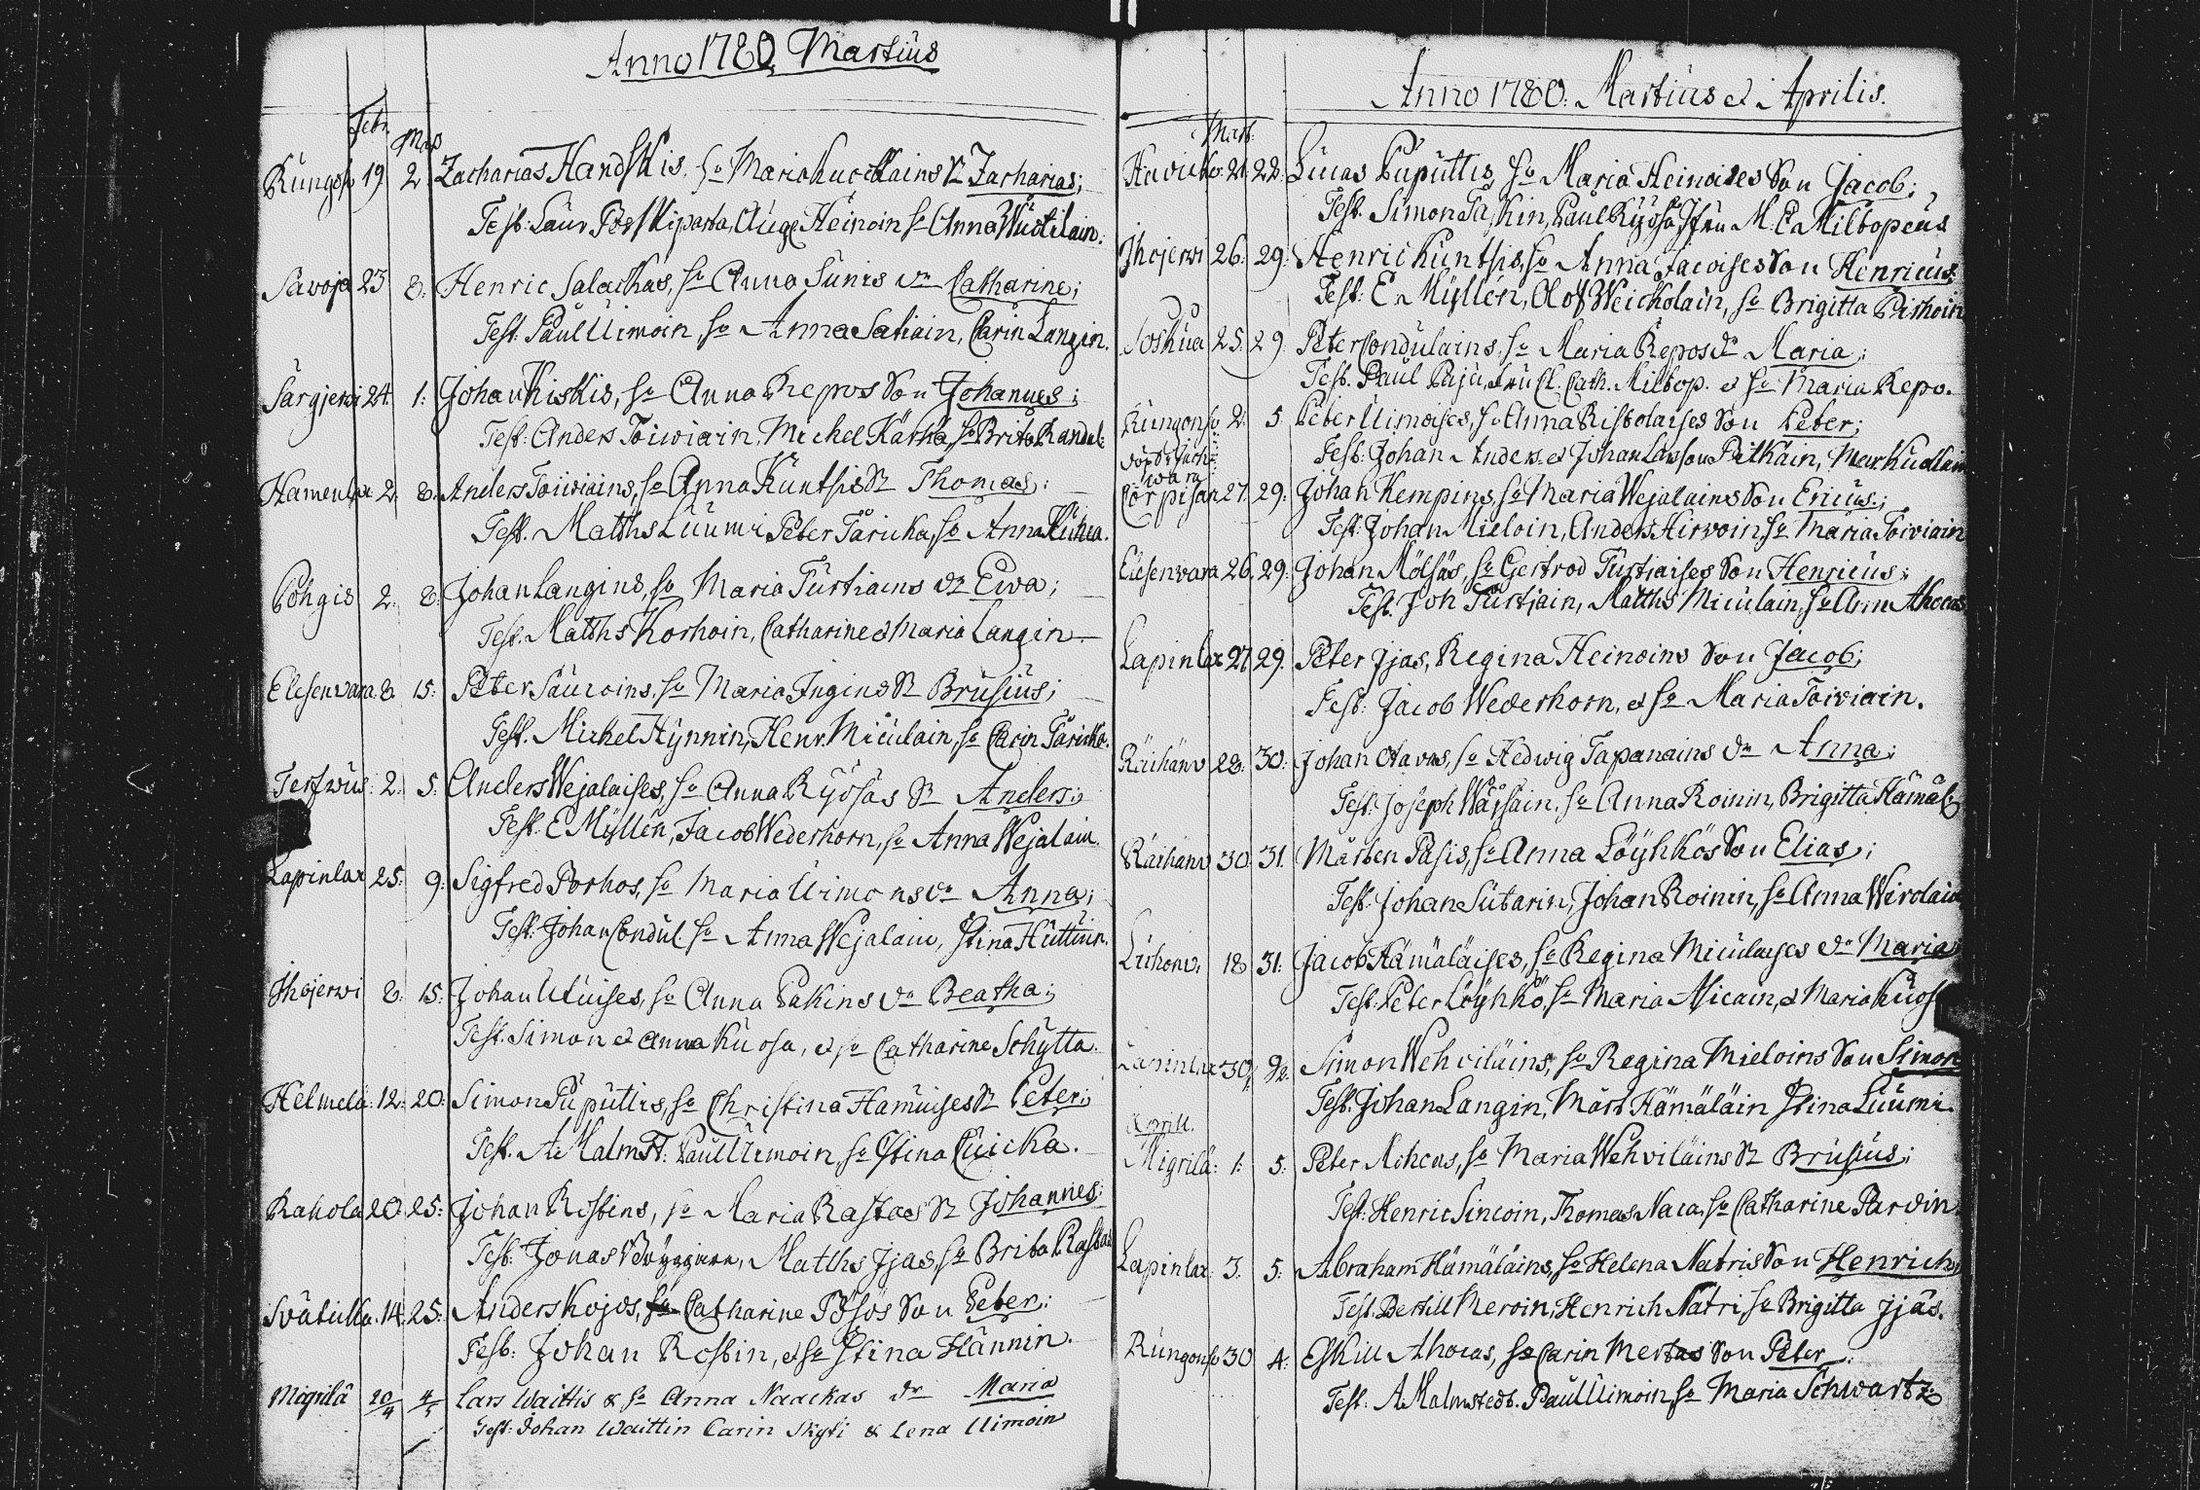 Anno 1780 Martius
Febr. Mar
Kungoh 19 2. Zacharias Handskis. ho Maria Sn Zacharias;
Test: Laur Heinoin ho Anna
Savoja 23 8. Henric Salackas, ho Anna Sunis dr Catharine;
Test: Paul Uimoin ho Anna Carin Langin.
Särgjerwi 24. 1. Johan Kiskis, ho Anna Repos Son Johannes;
Test: Anders Toiwiain, Michel Kärhä, ho Brita Randul:
2. 8. Anders Toiwiains, ho Anna Kunthis Sn Thomas:
Test. Matths Luumi Peter Täricka, ho Anna
Pohgis 2. 8. Johan Langins, ho Maria Turtiains dr Ewa;
Test. Matths Korhoin, Catharine et Maria Langin
Elisenvara. 8. 15. Peter Sauroins, ho Maria Ingins Sn Brusius;
Test. Michel Hynnin, Henr. Miculain, ho Carin Täricka.
Terfwus: 2. 5. Anders Wejalaises, ho Anna Ryösäs Sn Anders;
Test: E Myllén, Jacob Wederhorn, ho Anna Wejalain.
Lapinlax 25. 9. Sigfred Porhos, ho Maria Uimons dr Anna;
Test: Johan Condul. ho Anna Wejalain, Stina Huttuin.
Ihojerwi 8. 15. Johan ho Anna Pakins dr Beatha;
Test. Simon et Anna Kuosa, et ho Catharine Schytta.
Helmelä: 12. 20. Simon Puputtis, ho Christina Hamuises Sn Peter;
Test. A Malmst: Paul Uimoin, ho Stina Cuicka.
Rahola 20. 25. Johan Rostins, ho Maria Rastas Sn Johannes:
Test: Jonas Matths Ijas, ho Brita Rastas
Svätukka. 14. 25. Anders Kojos, ho Catharine Pösös Son Peter;
Test: Johan Rostin, et ho Stina Hännin.
Migrilä 20/4 4/5 Lars Waittis & ho Anna Naackas dr Maria
Test: Johan Waittin Carin Skyti & Lena Uimoin
Anno 1780. Martius et Aprilis.
Mart.
21. 22. Lucas Puputtis, ho Maria Heinoises Son Jacob;
Test. Simon Paul Ryösä Jfru M. E. Miltopeus
Ihojerwi 26. 29. Henric Kunthis, ho Anna Jacoises Son Henricus;
Test: E. Myllén, Olof Weickolain, ho Brigitta
Soskua 25. 29. Peter Condulains, ho Maria Repos dr Maria;
Test. Paul Paju, Cath. Miltop. et ho Maria Repo.
2. 5 Peter Uimoises, ho Anna Ristolaises Son Peter;
Test: Johan Anders. et Johan Larsson Pitkäin,
27. 29. Johan Kempins, ho Maria Wejalains Son Ericus;
Test: Johan Mieloin, Anders Hirvoin, ho Maria Toiviain
Elisenvara 26. 29. Johan Mölsäs, ho Gertrod Turtiaises Son Henricus;
Test. Joh Turtiain, Matths Miculain, ho Ann Ahocas
Lapinlax 27. 29. Peter Ijas, Regina Heinoins Son Jacob;
Test: Jacob Wederhorn, et ho Maria Toiviain.
Räihänv 28. 30. Johan Otavas, ho Hedwig Tapanains dr Anna;
Test: Joseph ho Anna Roinin, Brigitta Hämäl:
Räihänv 30. 31. Mårten Päsis, ho Anna Löyhkös Son Elias;
Test: Johan Sutarin, Johan Roinin, ho Anna Wirolain
18 31. Jacob Hämäläises, ho Regina Miculaises dr Maria
Test: Peter Löyhkö, ho Maria et Maria Kuosa
Lapinlax 30. Simon Wehviläins, ho Regina Mieloins Son Simon
Test. Johan Langin, Mårt Hämäläin Stina Luumi.
Aprill.
Migrilä: 1. 5. Peter Ahocas, ho Maria Wehviläins Sn Brusius;
Test: Henric Sincoin, Thomas Naca, ho Catharine Parvin
Lapinlax: 3. 5. Abraham Hämäläins, ho Helena Natris Son Henrich;
Test. Bertill Meroin, Henrich Natri ho Brigitta Ijäs.
30 4. Eskill Ahocas, ho Carin Mertas Son Peter:
Test: A Malmstedt. Paul Uimoin, ho Maria Schwartz